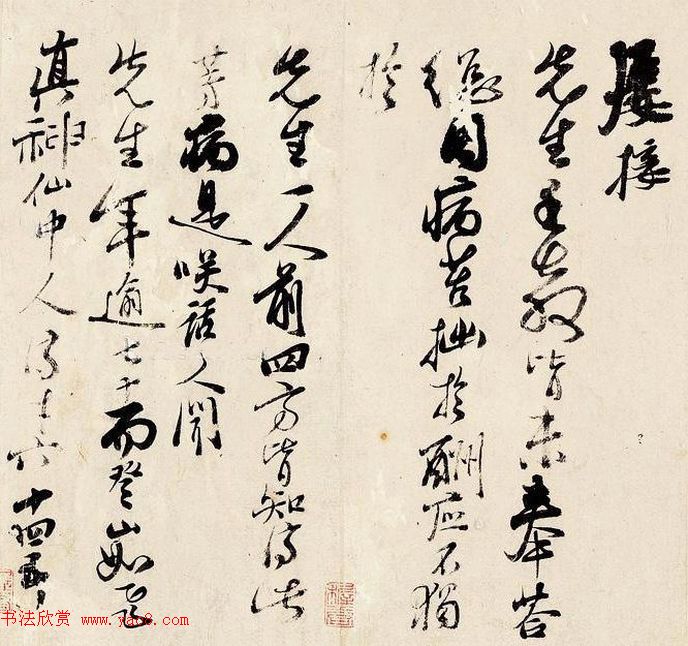 屢接
先生手教皆未奉荅
總因病苦拙於酬應不獨
於
先生一人前四方皆知得此
等病是咲話人聞
先生年逾七十而登山如飛
真神仙中人
六
十四五
书法欣赏 www.yac8.com